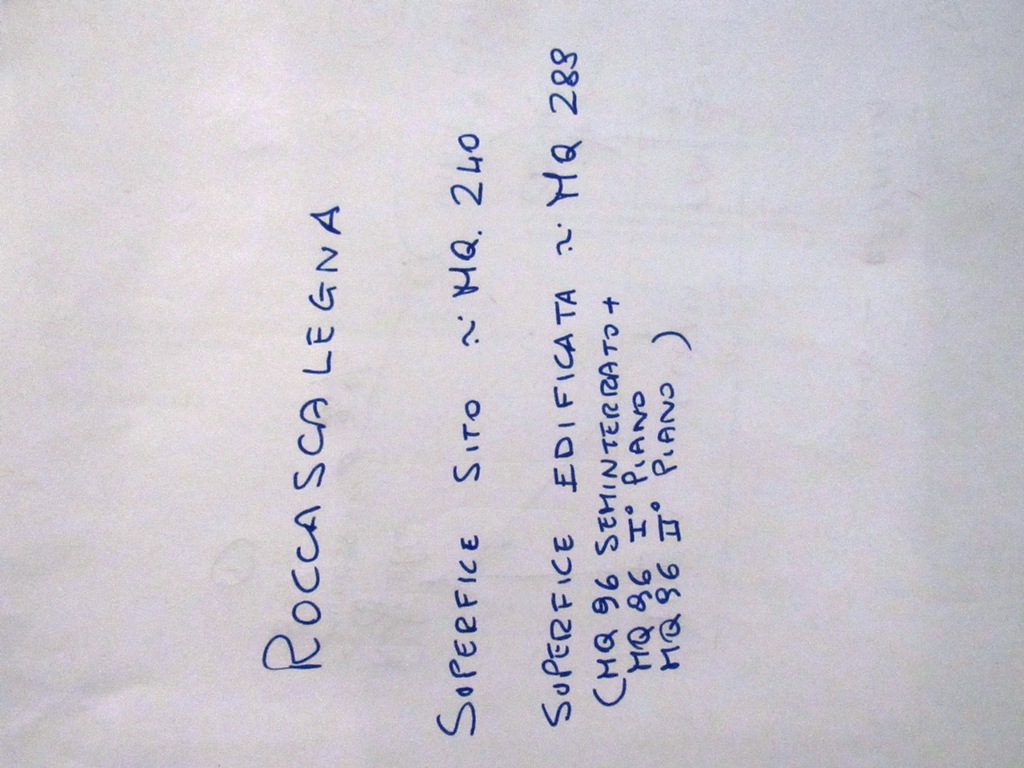 ROCCASCALEGNA
SUPERFICE SITO ~ MQ. 240
SUPERFICE EDIFICATA ~ MQ 289
(MQ 96 SEMINTERRATO +
MQ 96 I° PIANO
MQ 96 II° PIANO)